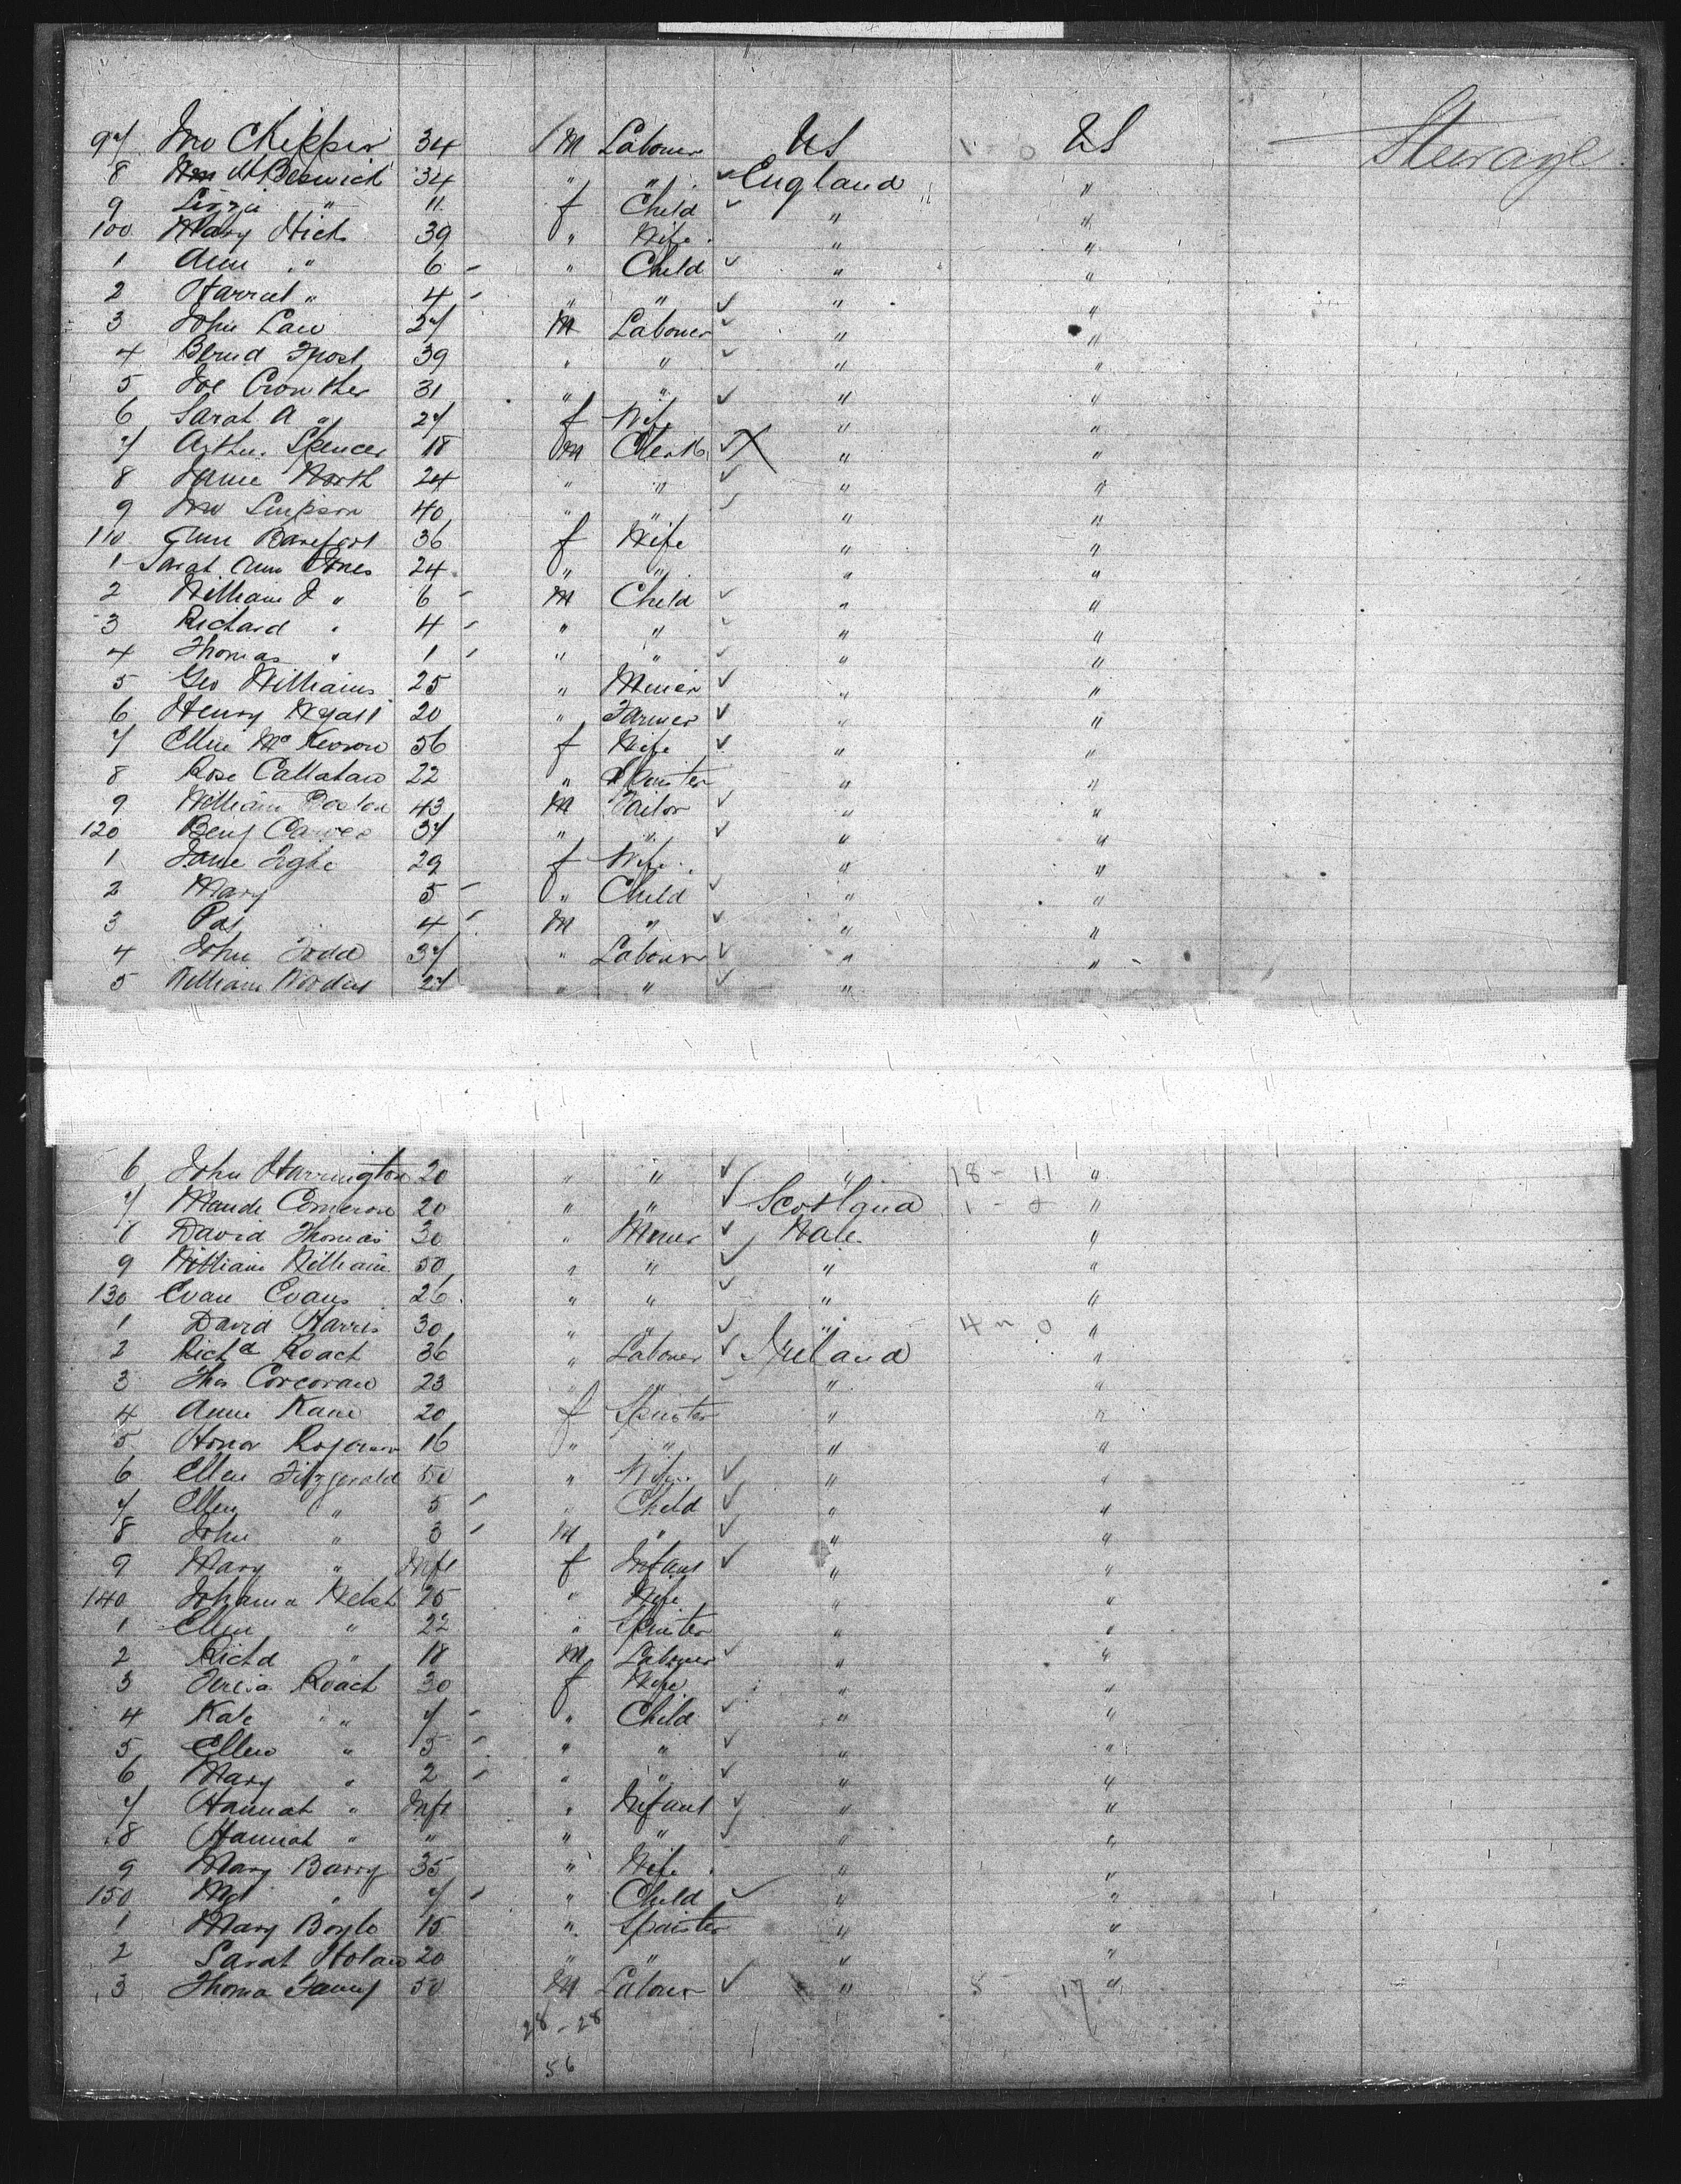 97 Jno Chipper 34 M Laborer US 1 - 0 US Steerage
8 Wm H Beswick 34 " " England "
9 Lizzie " 11 f Child " "
100 Mary Hick 39 " Wife " "
1 Ann " 6 " Child " "
2 Harriet " 4 " " " "
3 John Law 27 M Laborer " "
4 Frost 39 " " " "
5 Joe Crowther 31 " " " "
6 Sarah A " 27 f Wife " "
7 Arthur Spencer 18 M Clerk X " "
8 North 24 " " " "
9 Jno Simpson 40 " " " "
110 Ann 36 f Wife " "
1 Sarah Ann Jones 24 " " " "
2 William J " 6 M Child " "
3 Richard " 4 " " " "
4 Thomas " 1 " " " "
5 Geo Williams 25 " Miner " "
6 Henry Wyatt 20 " Farmer " "
7 Ellen McKeown 56 f Wife " "
8 Rose Callahan 22 " Spinster " "
9 William 43 M Tailor " "
120 Benj 37 " " " "
1 Jane Tighe 29 f Wife " "
2 Mary 5 " Child " "
3 Pat 4 M " " "
4 John Todd 37 " Laborer " "
5 William 27 " " "
6 John Harrington 20 " " " 18 - 11 "
7 Maude Cameron 20 " " Scotland 1 - 0 "
8 David Thomas 30 " Miner Wale "
9 William William 50 " " " "
130 Evan Evans 26 " " " "
1 David Harris 30 " " " 4 - 0 "
2 Richd Roach 36 " Laborer Ireland "
3 Thos Corcoran 23 " " " "
4 Annie Kane 20 f Spinster " "
5 Honor 16 " " " "
6 Ellen Fitzgerald 50 " Wife " "
7 Ellen " 5 " Child " "
8 John " 3 M " " "
9 Mary " Inft f Infant " "
140 Johanna Welsh 25 " Wife " "
1 Ellen " 22 " Spinster " "
2 Richd " 18 M Laborer " "
3 Roach 30 f Wife " "
4 Kate " 7 " Child " "
5 Ellen " 5 " " " "
6 Mary " 2 " " " "
7 Hannah " Inft " Infant " "
8 Hannah " " " " " "
9 Mary Barry 35 " Wife " "
150 Mgt " 7 " Child " "
1 Mary Boyle 15 " Spinster " "
2 Sarah Holan 20 " " " "
3 Thoma 50 M Laborer " 8 - 17 "
28 - 28
56